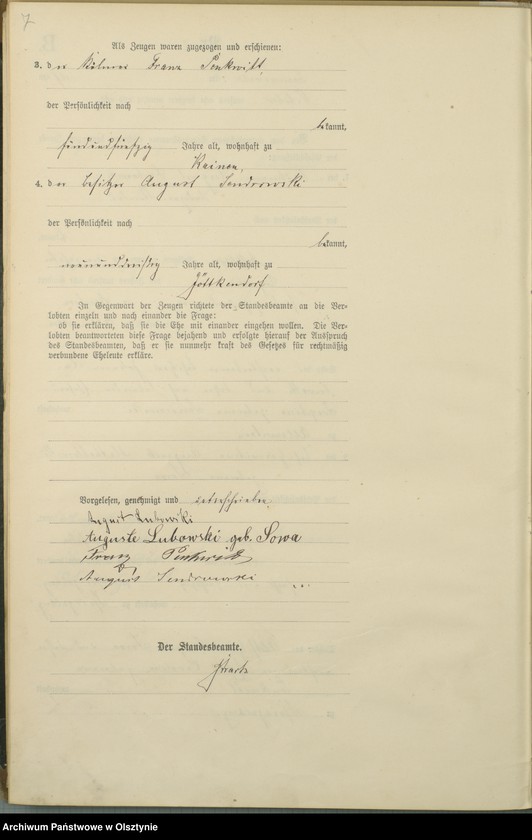 7
Als Zeugen waren zugezogen und erschienen:
3. der Kölmer Franz Penkwitt,
der Persönlichkeit nach
bekannt,
fünfundfünfzig Jahre alt, wohnhaft zu
Kainen,
4. der Besitzer August Sendrowski
der Persönlichkeit nach
bekannt,
neununddreißig Jahre alt, wohnhaft zu
Göttkendorf
In Gegenwart der Zeugen richtete der Standesbeamte an die Ver-
lobten einzeln und nach einander die Frage:
ob sie erklären, daß sie die Ehe mit einander eingehen wollen. Die Ver-
lobten beantworteten diese Frage bejahend und erfolgte hierauf der Ausspruch
des Standesbeamten, daß er sie nunmehr kraft des Gesetzes für rechtmäßig
verbundene Eheleute erkläre.
Vorgelesen, genehmigt und unterschrieben
August Lubowski
Auguste Lubowski geb. Sowa
Franz Penkwitt
August Sendrowski
Der Standesbeamte.
Archiwum Państwowe w Olsztynie